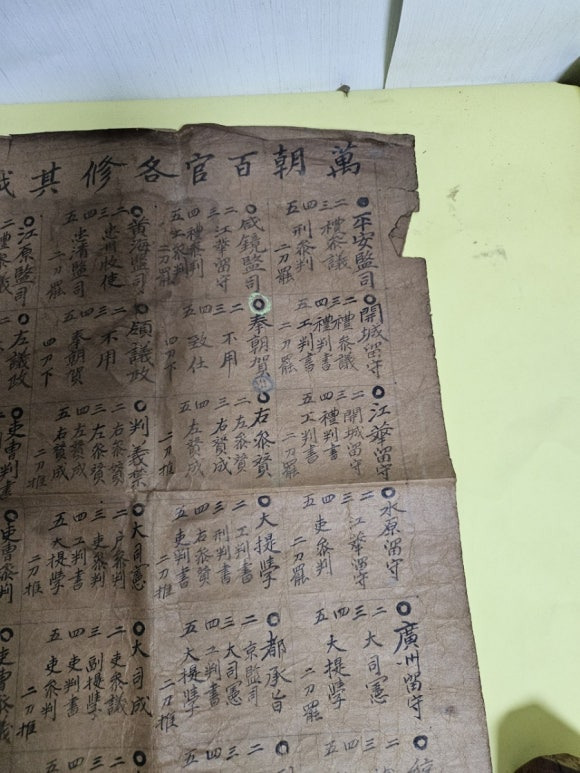 萬朝百官各修其
平安監司
二 禮參議
三
四 刑參判
五
二刀罷
咸鏡監司
二 江華留守
三
四 禮參判
五 工參判
二刀罷
黃海監司
二 忠州牧使
三
四 忠清監司
五
二刀罷
江原監司
二禮參議
開城留守
二禮參議
三禮判書
四
五工判書
二刀罷
奉朝賀
二 不用
三
四 致仕
五
四刀下
領議政
二 不用
三
四 奉朝賀
五
四刀下
左議政
二
江華留守
二開城留守
三
四禮判書
五工判書
二刀罷
右參贊
二左參贊
三右贊成
四
五左贊成
二刀推
判義禁
二右參贊
三左參贊
四左贊成
五右贊成
二刀推
吏曹判書
水原留守
二 江華留守
三
四 吏參判
五
二刀罷
大提學
二工判書
三刑判書
四右參贊
五吏判書
二刀推
大司憲
二戶參判
三吏參判
四工判書
五大提學
二刀推
吏曹參判
廣州留守
二 大司憲
三
四 大提學
五
二刀罷
都承旨
二京監司
三大司憲
四工判書
五大提學
二刀推
大司成
二吏參議
三副提學
四吏判書
五吏參判
二刀推
吏曹參議
二
三
四
五
二
三
四
五
二
三
四
五